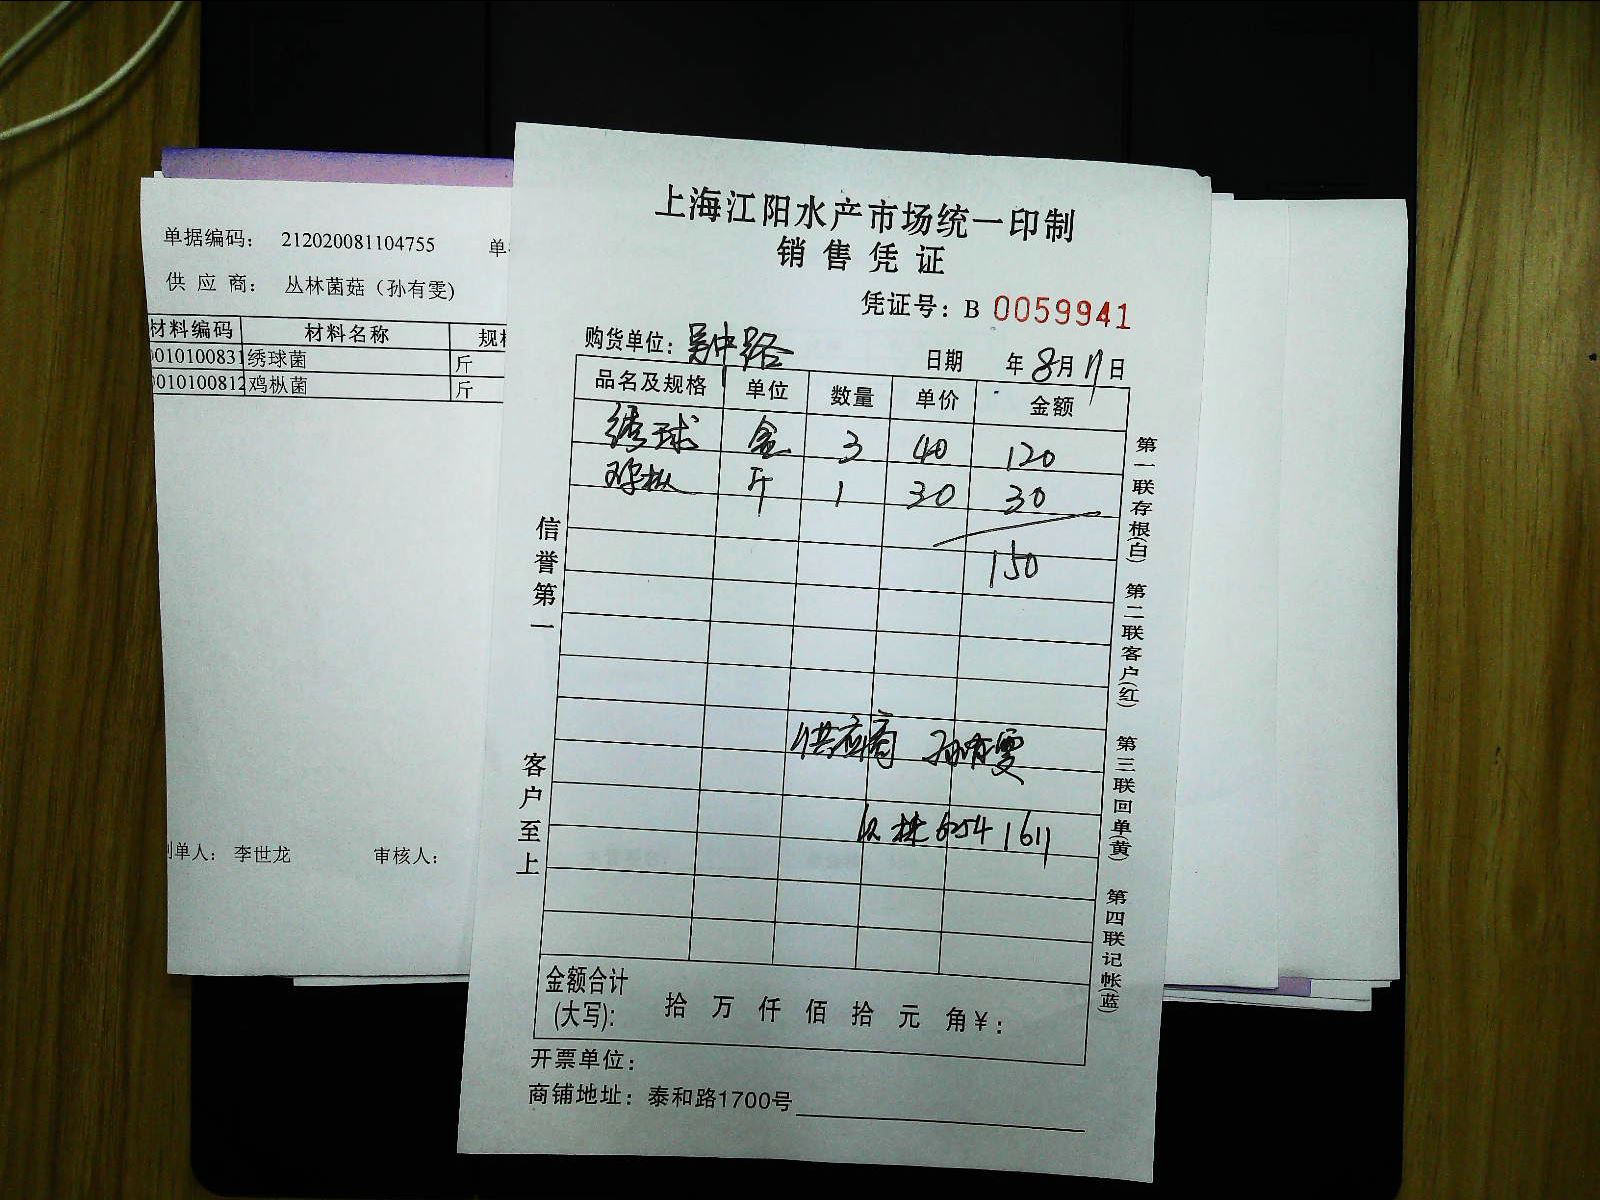 单据编码： 212020081104755 单
供 应 商： 丛林菌菇（孙有雯)
材料编码 材料名称 规格
0010100831 绣球菌 斤
0010100812 鸡枞菌 斤
制单人： 李世龙 审核人：
上海江阳水产市场统一印制
销售凭证
凭证号：B 0059941
购货单位：吴中路 日期 年 8月 11日
品名及规格 单位 数量 单价 金额
绣球 盒 3 40 120
鸡枞 斤 1 30 30
150
供应商 孙有雯
丛林 6254 1611
金额合计(大写)： 拾 万 仟 佰 拾 元 角￥：
开票单位：
商铺地址：泰和路1700号
信誉第一
客户至上
第一联存根(白) 第二联客户(红) 第三联回单(黄) 第四联记帐(蓝)